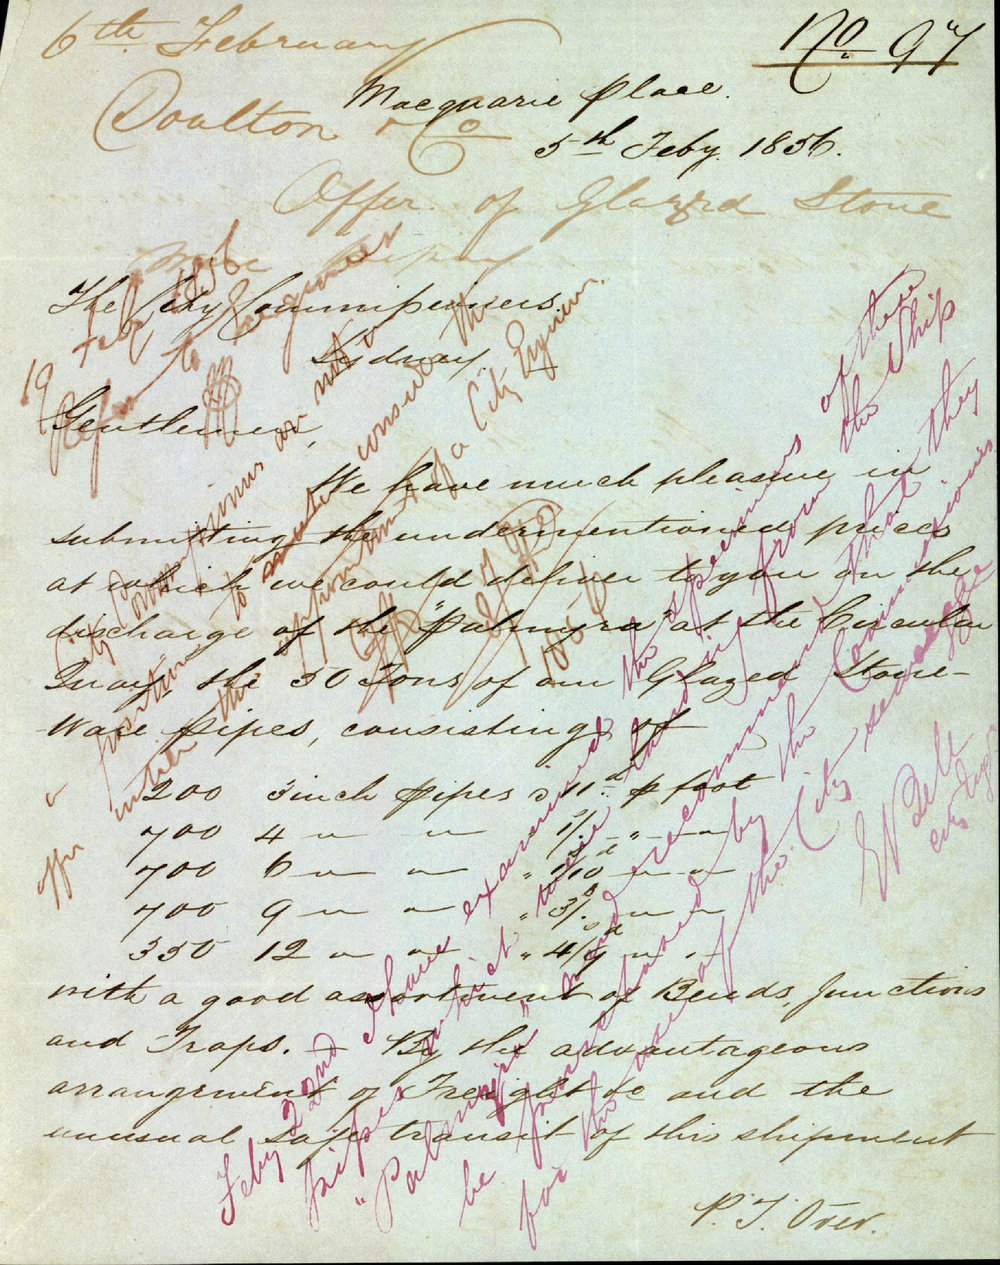 6th February
No. 97
Doulton & Co
Macquarie Place.
5th Feby. 1856.
Offer of Glazed Stone
Ware Pipes
The City Commissioners.
Sydney.
Gentlemen,
We have much pleasure in
submitting the undermentioned prices
at which we could deliver to you on the
discharge of the "Palmyra" at the Circular
Quay, the 50 Tons of our Glazed Stone-
Ware Pipes, consisting of
200 3 inch Pipes @ 1/. p foot
700 4 " " 1/5 " "
700 6 " " " 1/10d " "
700 9 " " " 3/. " "
350 12 " " " 4/9d " "
with a good assortment of Bends, Junctions
and Traps. — By the advantageous
arrangement of Freight &c and the
unusual safe transit of this shipment
P.T. Over.
19 Feby 1856
Refer to Engineer
City Commissioners are not in
position to consider the
offer when the appointment of a City Engineer
Feby 22nd I have examined the specimens of these
pipes which were landing from the Ship
"Palmyra" and recommend that they
be purchased by the Commissioners
for the use of the City sewerage
W Bell
City Engr